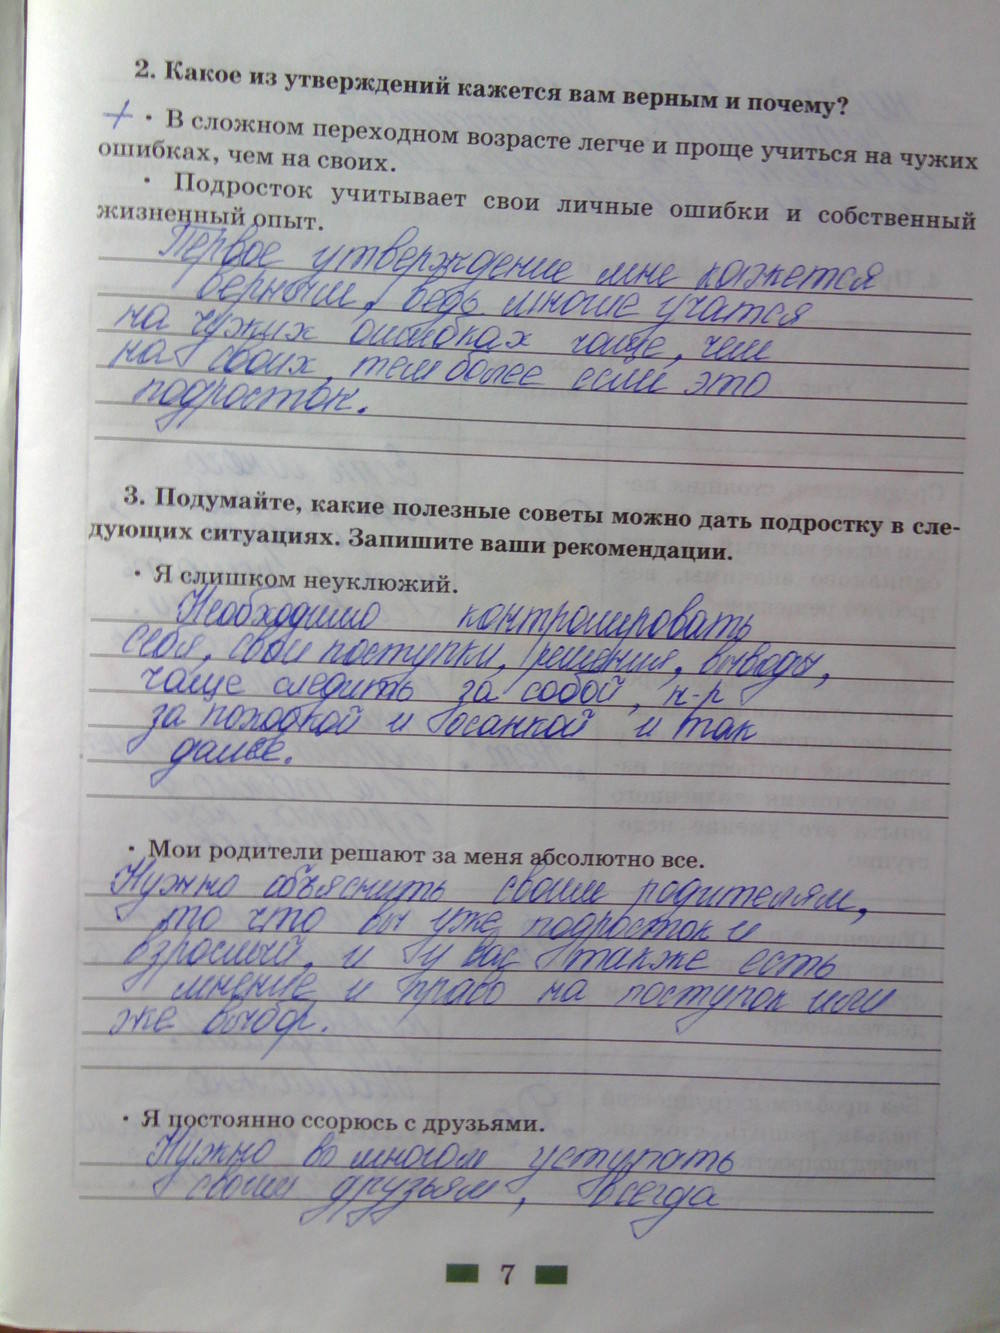 2. Какое из утверждений кажется вам верным и почему?
+ • В сложном переходном возрасте легче и проще учиться на чужих
ошибках, чем на своих.
• Подросток учитывает свои личные ошибки и собственный
жизненный опыт.
Первое утверждение мне кажется
верным, ведь многие учатся
на чужих ошибках чаще, чем
на своих, тем более если это
подросток.
3. Подумайте, какие полезные советы можно дать подростку в сле-
дующих ситуациях. Запишите ваши рекомендации.
• Я слишком неуклюжий.
Необходимо контролировать
себя, свои поступки, решения, выводы,
чаще следить за собой, н-р
за походкой и осанкой и так
далее.
• Мои родители решают за меня абсолютно все.
Нужно объяснить своим родителям,
то что вы уже подросток и
взрослый, и у вас также есть
мнение и право на поступок или
же выбор.
• Я постоянно ссорюсь с друзьями.
Нужно во многом уступать
своим друзьям, всегда
7